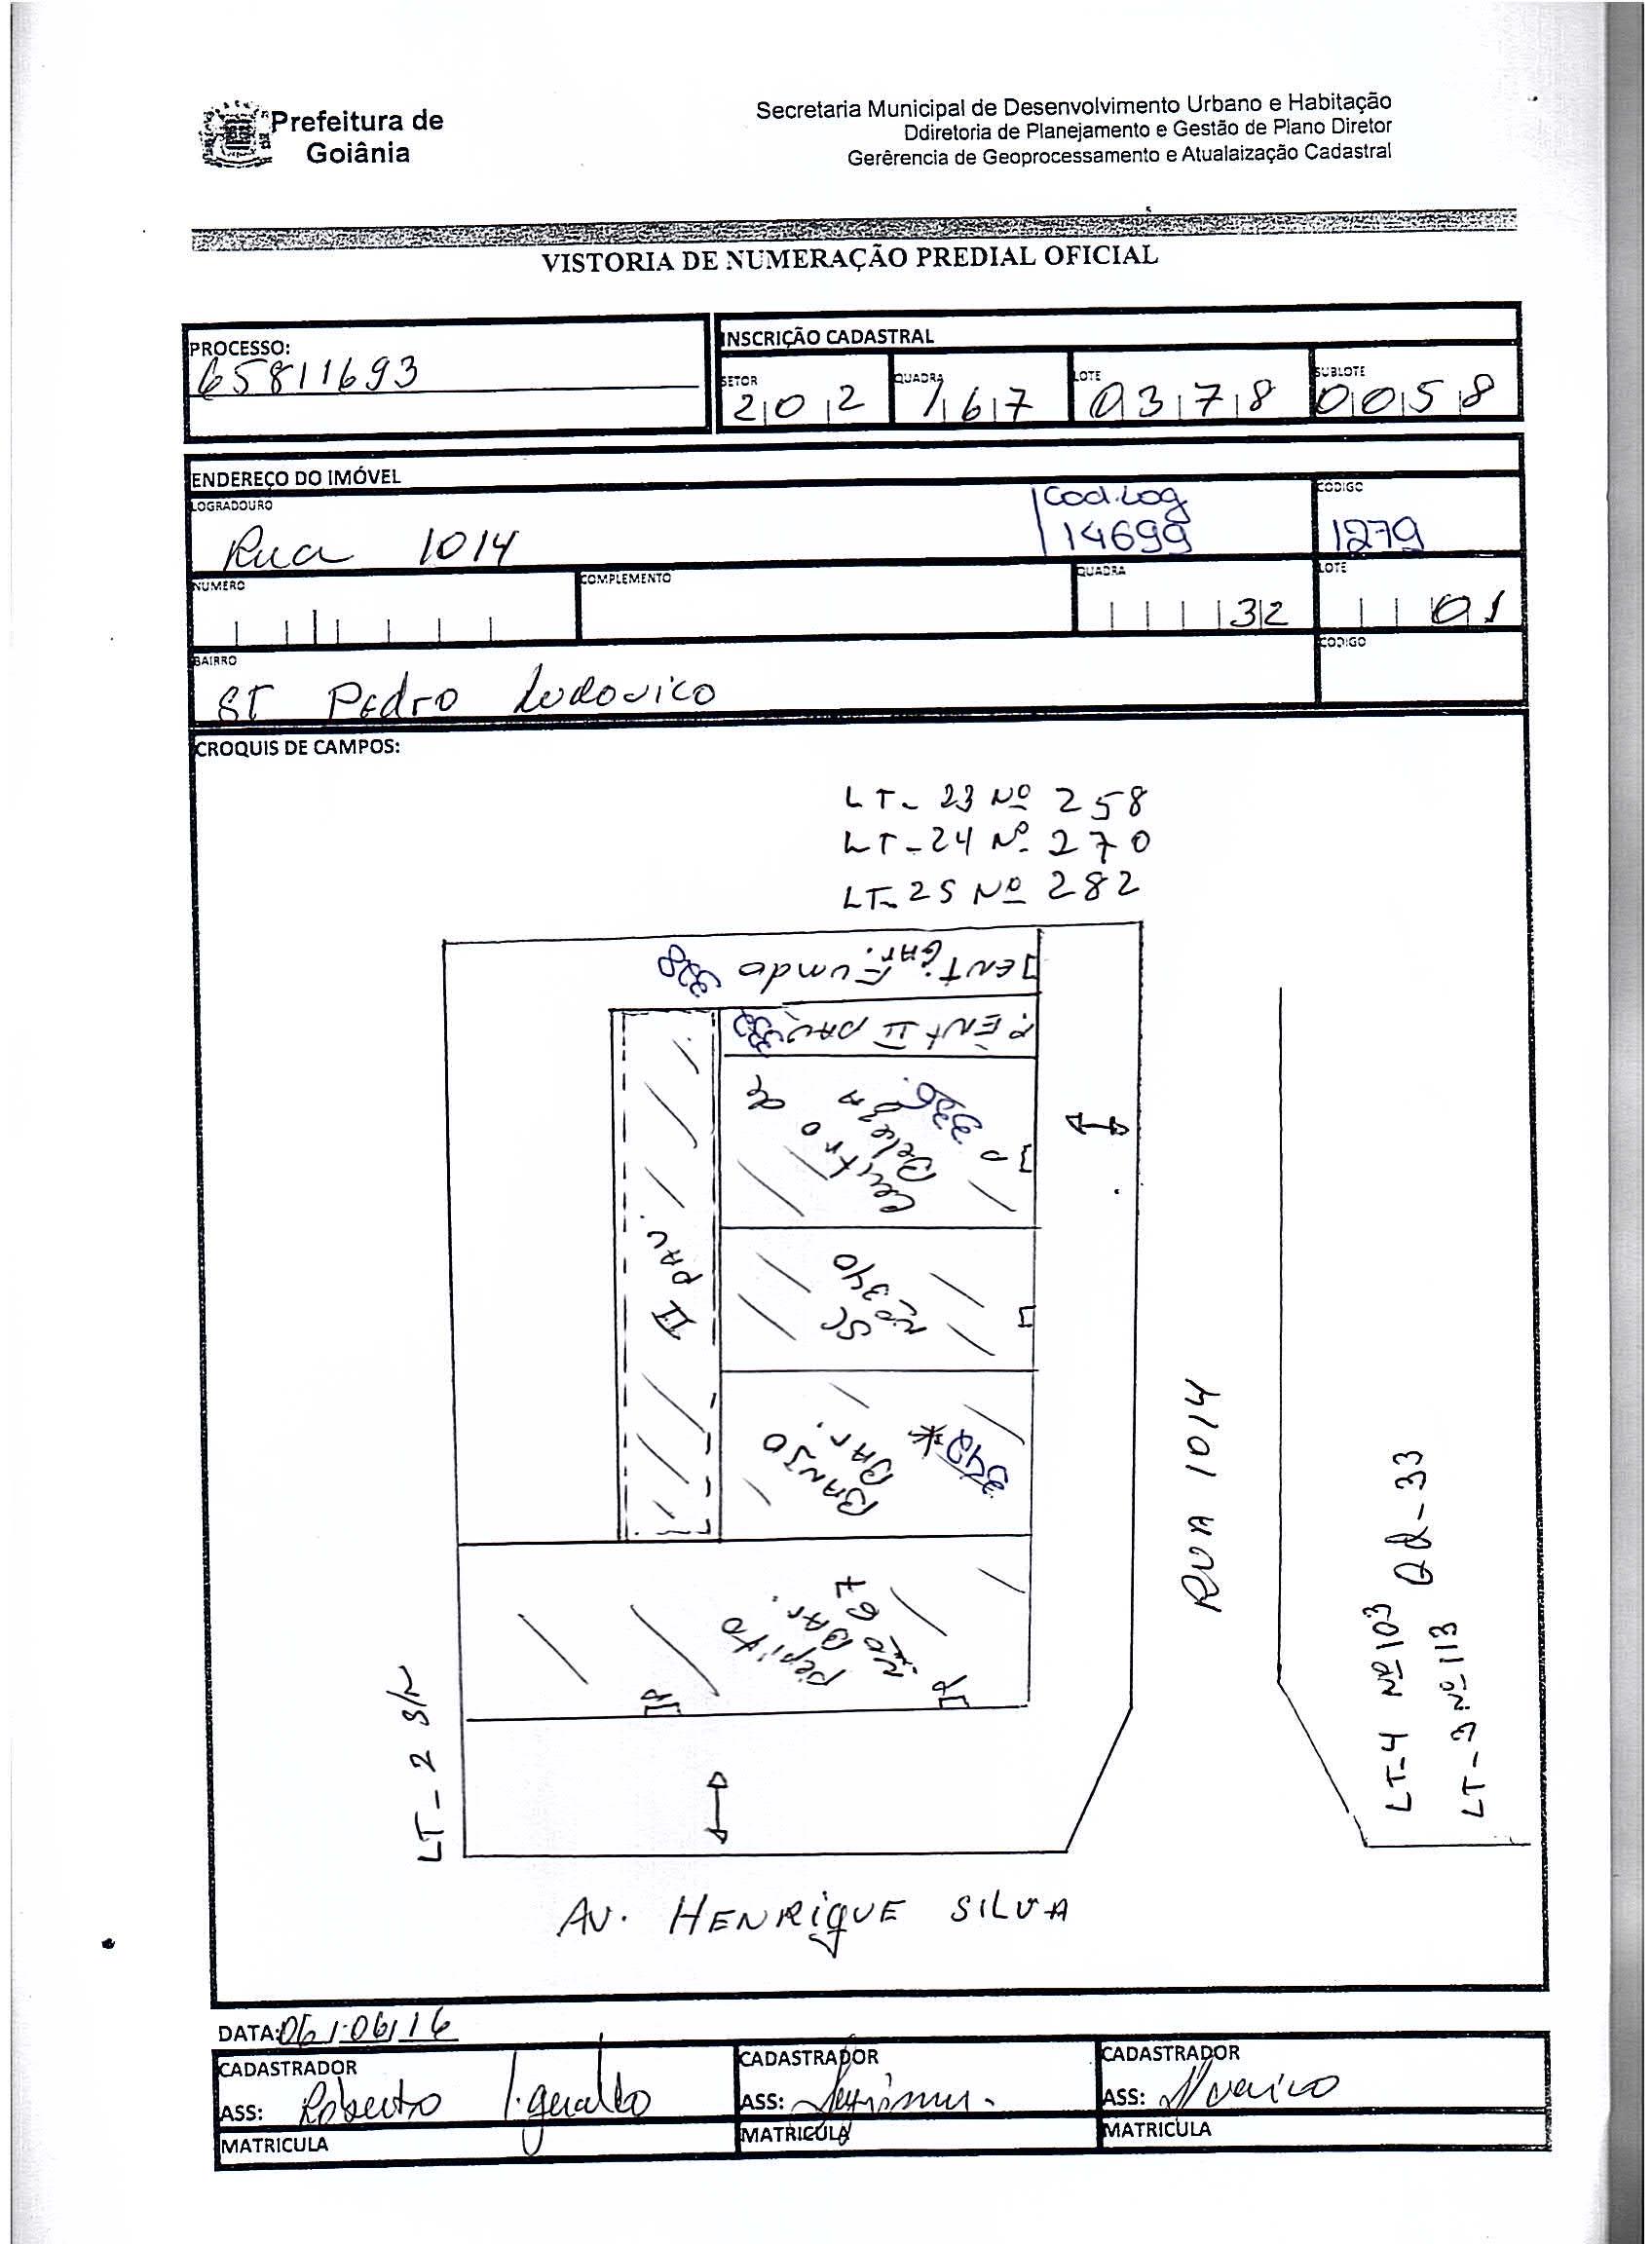 Prefeitura de
Goiânia
Secretaria Municipal de Desenvolvimento Urbano e Habitação
Ddiretoria de Planejamento e Gestão de Plano Diretor
Gerêrencia de Geoprocessamento e Atualaização Cadastral
VISTORIA DE NUMERAÇÃO PREDIAL OFICIAL
PROCESSO:
65811693
INSCRIÇÃO CADASTRAL
SETOR QUADRA LOTE SUBLOTE
202 167 0378 0058
ENDEREÇO DO IMÓVEL
LOGRADOURO CODIGO
Rua 1014 Cod.Log 14699 1279
NUMERO COMPLEMENTO QUADRA LOTE
32 01
BAIRRO CODIGO
ST Pedro Ludovico
CROQUIS DE CAMPOS:
LT- 23 Nº 258
LT-24 Nº 270
LT-25 Nº 282
ENT. GAR. Fundo 328
P. ENT II PAV 332
Centro de
Beleza
336
P
II PAV.
SC
Nº 340
BANJO
BAR.
348*
Pepito
BAR.
Nº 67
P
P
RUA 1014
QD-33
LT-4 Nº 103
LT-3 Nº 113
LT-2 S/N
AV. HENRIQUE SILVA
DATA: 06/06/16
CADASTRADOR CADASTRADOR CADASTRADOR
ASS: Roberto J. geraldo ASS: ASS:
MATRICULA MATRICULA MATRICULA